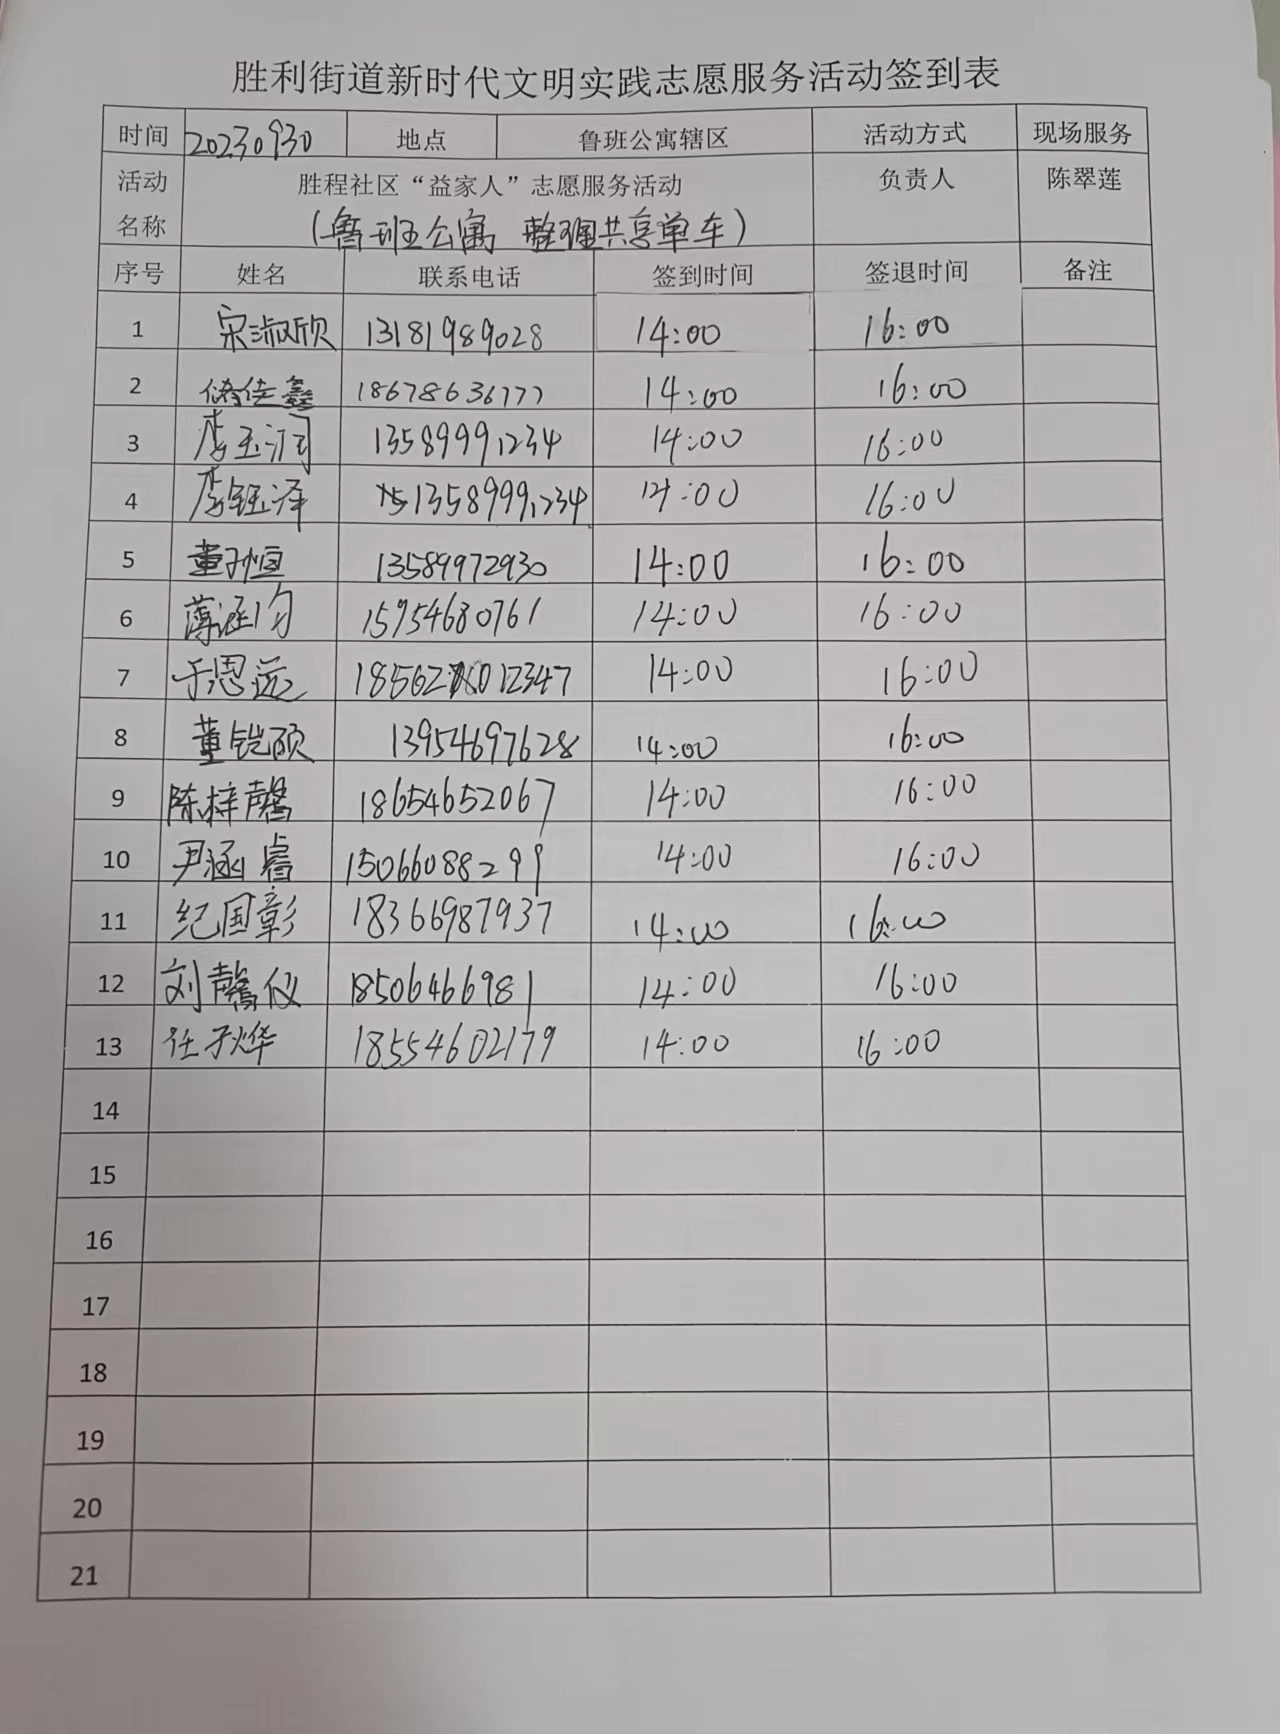 胜利街道新时代文明实践志愿服务活动签到表
时间 20230930 地点 鲁班公寓辖区 活动方式 现场服务
活动名称 胜程社区“益家人”志愿服务活动 负责人 陈翠莲
(鲁班公寓 整理共享单车)
序号 姓名 联系电话 签到时间 签退时间 备注
1 宋淑欣 13181989028 14:00 16:00
2 佳鑫 18678636777 14:00 16:00
3 李玉润 13589991234 14:00 16:00
4 李钰泽 13589991234 14:00 16:00
5 董孙恒 13589972930 14:00 16:00
6 薄涵匀 15954680761 14:00 16:00
7 于恩远 18562012347 14:00 16:00
8 董铠硕 13954697628 14:00 16:00
9 陈梓馨 18654652067 14:00 16:00
10 尹涵睿 15066088299 14:00 16:00
11 纪国彰 18366987937 14:00 16:00
12 刘馨仪 18506466981 14:00 16:00
13 任子烨 18554602179 14:00 16:00
14
15
16
17
18
19
20
21